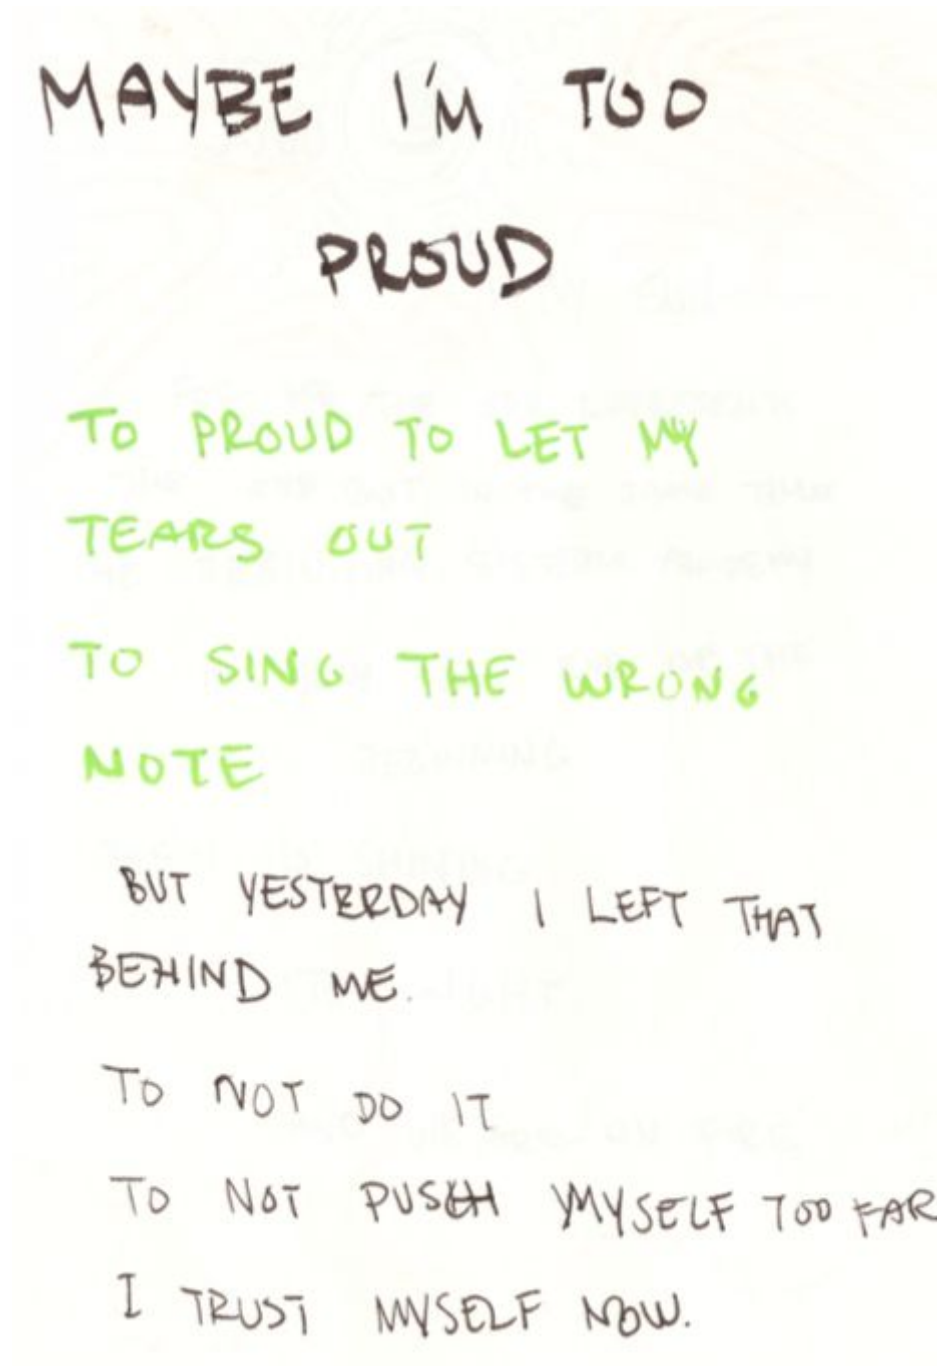 MAYBE I'M TOO
PROUD
TO PROUD TO LET MY
TEARS OUT
TO SING THE WRONG
NOTE
BUT YESTERDAY I LEFT THAT
BEHIND ME.
TO NOT DO IT
TO NOT PUSH MYSELF TOO FAR
I TRUST MYSELF NOW.